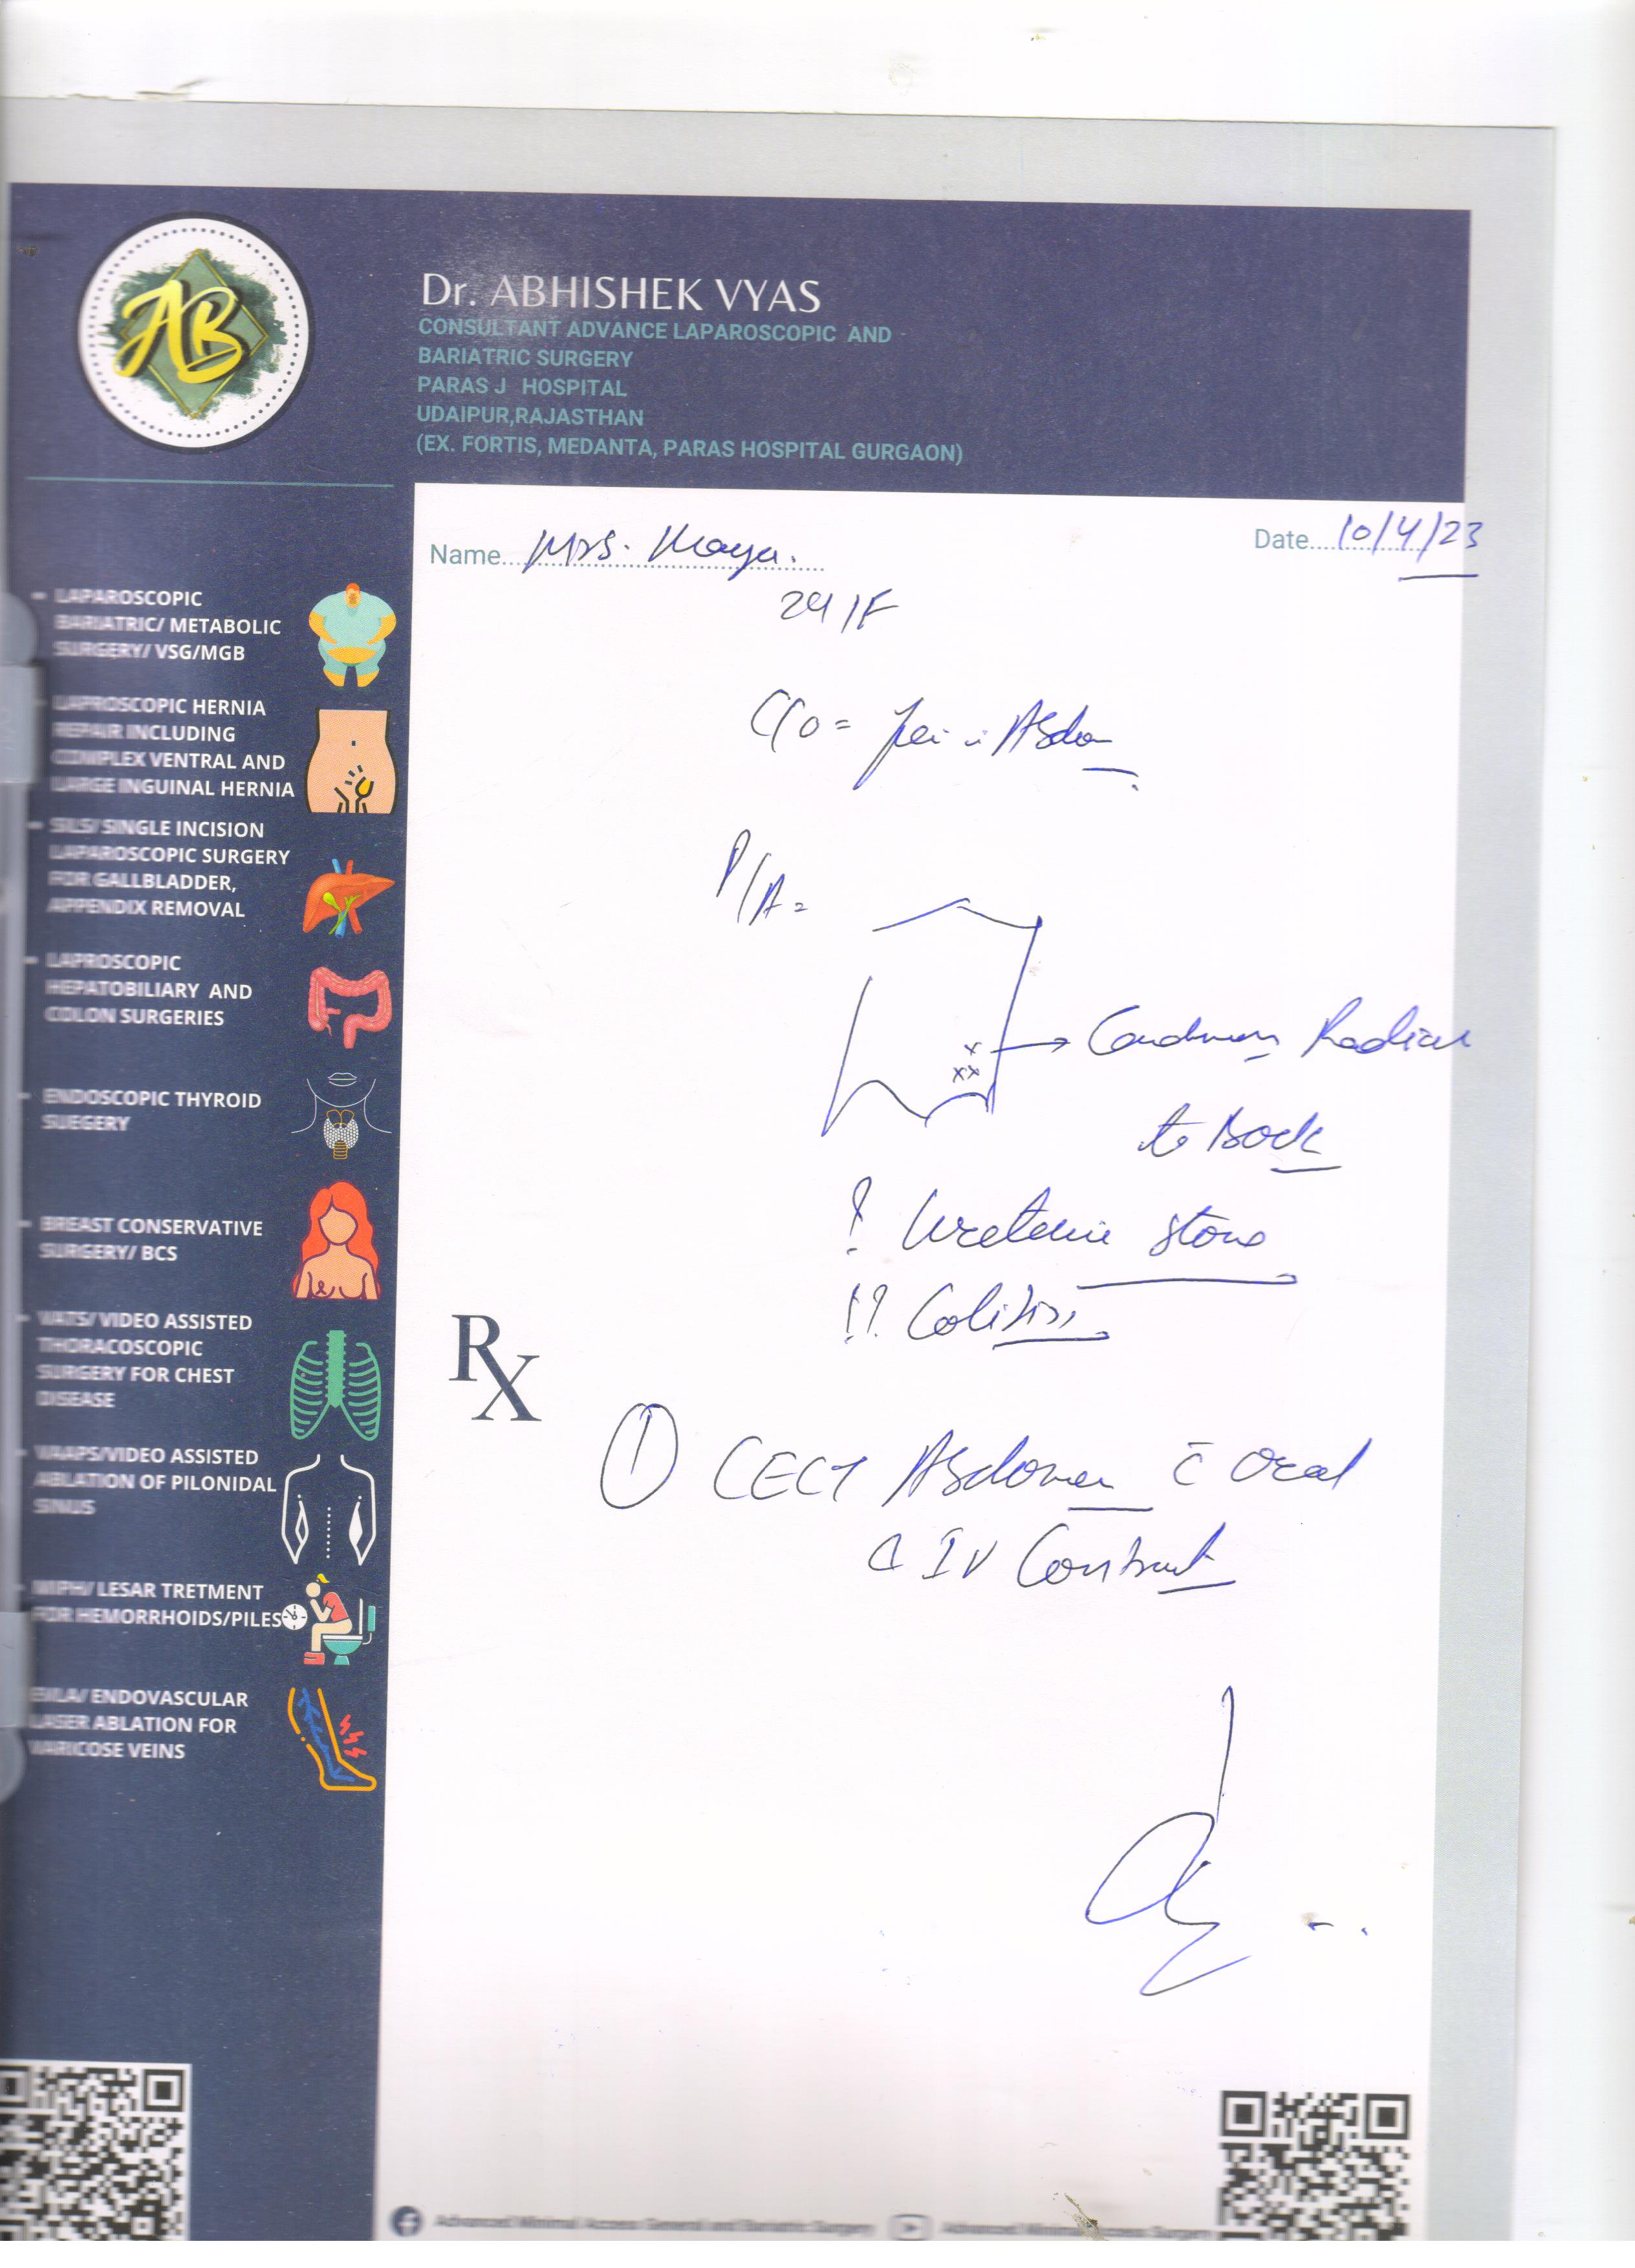 AB
Dr. ABHISHEK VYAS
CONSULTANT ADVANCE LAPAROSCOPIC AND
BARIATRIC SURGERY
PARAS J HOSPITAL
UDAIPUR,RAJASTHAN
(EX. FORTIS, MEDANTA, PARAS HOSPITAL GURGAON)
Name Mrs. Maya.
Date 10/4/23
24/F
LAPAROSCOPIC
BARIATRIC/ METABOLIC
SURGERY/ VSG/MGB
LAPROSCOPIC HERNIA
REPAIR INCLUDING
COMPLEX VENTRAL AND
LARGE INGUINAL HERNIA
SILS/ SINGLE INCISION
LAPAROSCOPIC SURGERY
FOR GALLBLADDER,
APPENDIX REMOVAL
LAPROSCOPIC
HEPATOBILIARY AND
COLON SURGERIES
ENDOSCOPIC THYROID
SUEGERY
BREAST CONSERVATIVE
SURGERY/ BCS
VATS/ VIDEO ASSISTED
THORACOSCOPIC
SURGERY FOR CHEST
DISEASE
VAAPS/VIDEO ASSISTED
ABLATION OF PILONIDAL
SINUS
MIPH/ LESAR TRETMENT
FOR HEMORRHOIDS/PILES
EVLA/ ENDOVASCULAR
LASER ABLATION FOR
VARICOSE VEINS
C/o =
P/A =
to Back
? Ureteric stone
!? Colitis
Rx
① CECT Abdomen c̄ oral
IV Contrast
Advanced Minimal Access General and Bariatric Surgery
Advanced Minimal Access Surgery